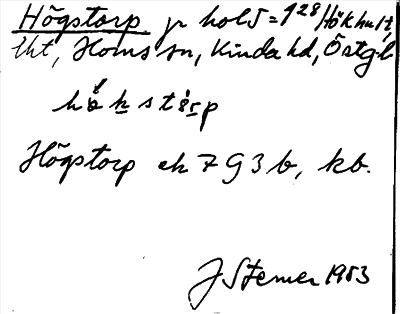 Högstorp p hold = 1²⁸ Hökhult,
Uht, Horns sn, Kinda hd, Östgl
hökstårp
Högstorp ek 7 G 3 b, kb.
J Stemer 1983